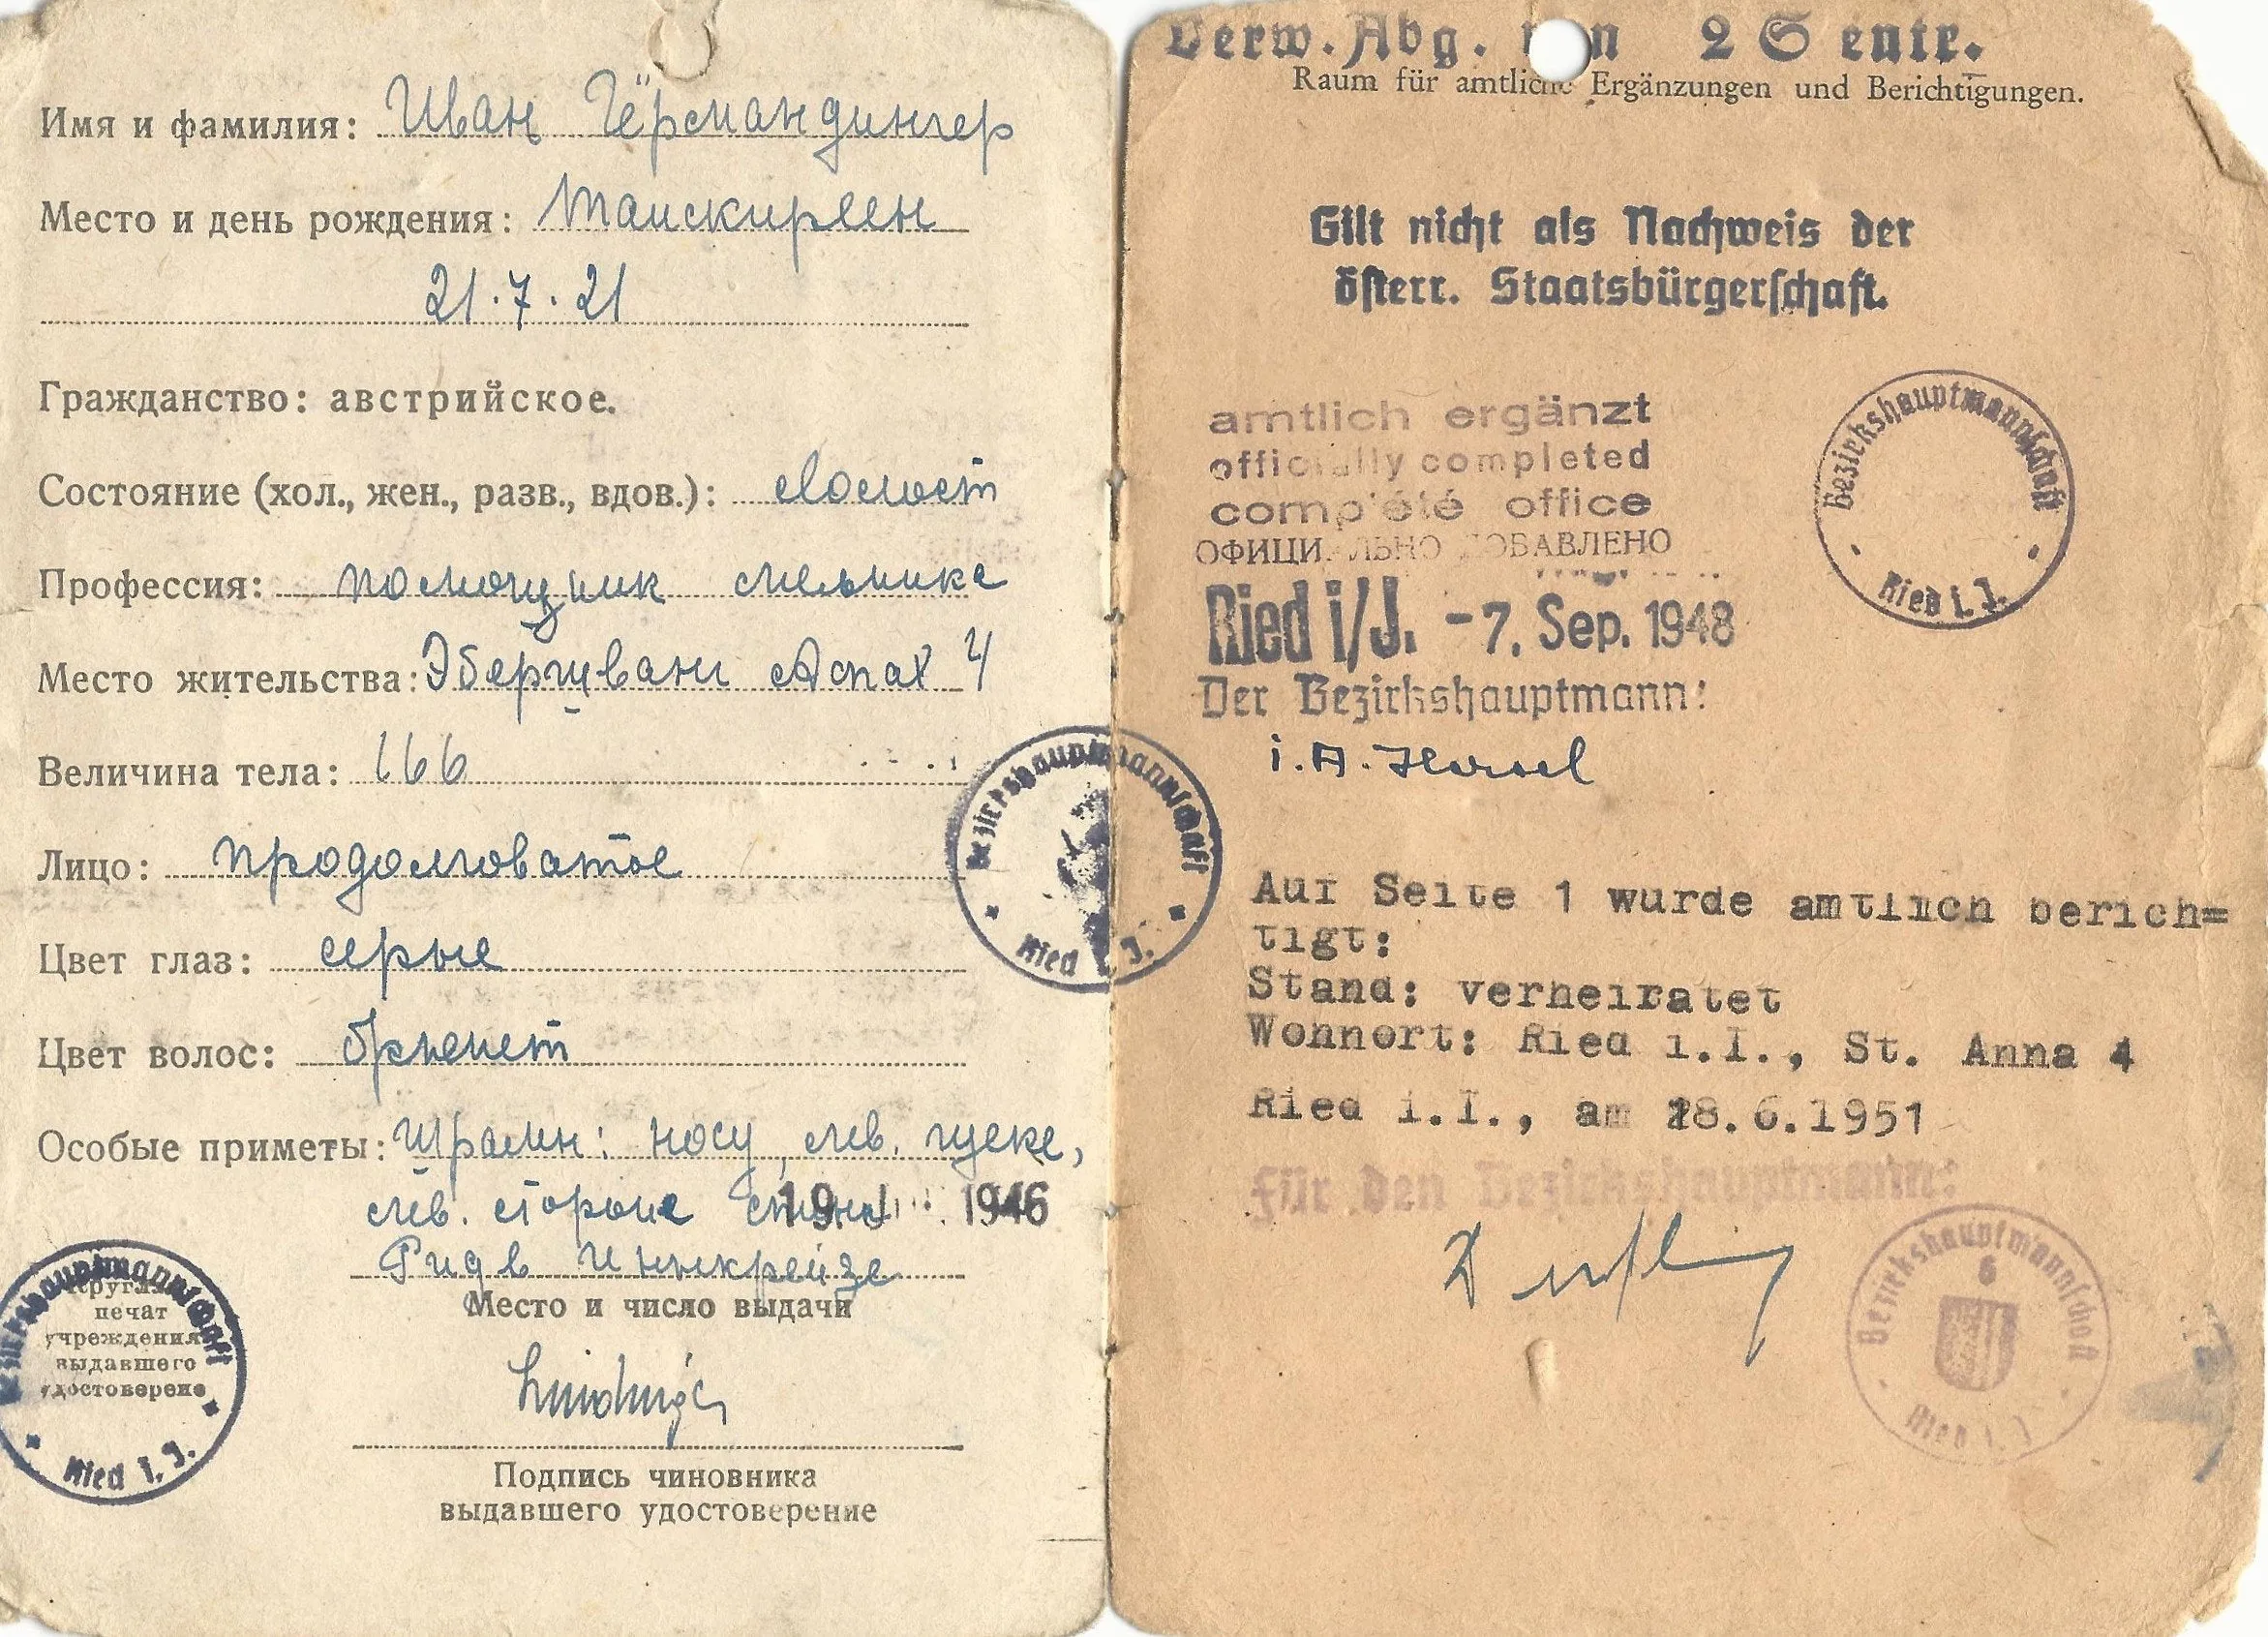 Имя и фамилия: Иван Гёрмандингер
Место и день рождения: Таискирхен
21.7.21
Гражданство: австрийское.
Состояние (хол., жен., разв., вдов.): холост
Профессия: помощник мельника
Место жительства: Эбершванг Аспах 4
Величина тела: 166
Лицо: продолговатое
Цвет глаз: серые
Цвет волос: брюнет
Особые приметы: Шрамы: носу, лев. щеке,
лев. стороне
19. 1946
Рид в Иннкрейзе
Место и число выдачи
Круглая
печат
учреждения
выдавшего
удостоверение
Bezirkshauptmannschaft
Ried i. J.
Подпись чиновника
выдавшего удостоверение
Bezirkshauptmannschaft
Ried i. J.
Verw. Abg. von 2 S entr.
Raum für amtliche Ergänzungen und Berichtigungen.
Gilt nicht als Nachweis der
österr. Staatsbürgerschaft.
amtlich ergänzt
officially completed
complété office
ОФИЦИАЛЬНО ДОБАВЛЕНО
Ried i/J. -7. Sep. 1948
Der Bezirkshauptmann:
i. A.
Bezirkshauptmannschaft
Ried i. J.
Auf Seite 1 wurde amtlich berich=
tigt:
Stand: verheiratet
Wohnort: Ried i.I., St. Anna 4
Ried i.I., am 28.6.1951
Für den Bezirkshauptmann:
Bezirkshauptmannschaft
6
Ried i. J.